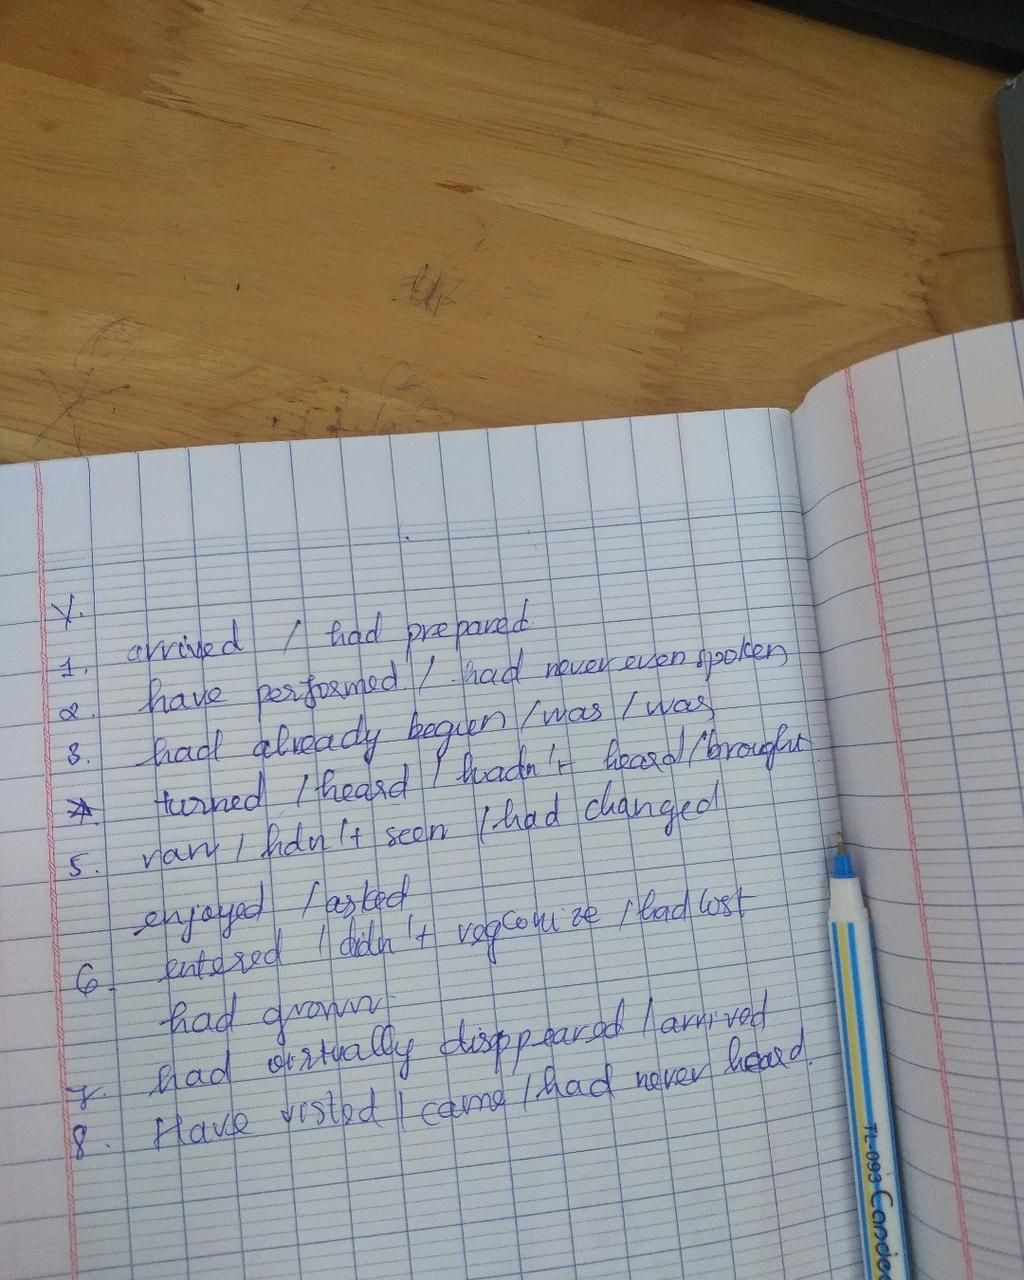 V.
1. arrived / had prepared
2. have performed / had never even spoken
3. had already begun / was / was
4. turned / heard / hadn't heard / brought
5. ran / hdn't seen / had changed
enjoyed / asked
6. entered / didn't regconize / had lost
had grown
7. had virtually disappeared / arrived
8. Have visted / came / had never heard.
TL-093